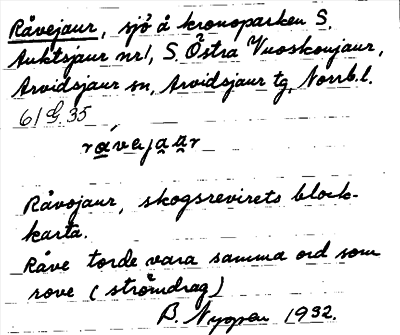 Råvejaur, sjö å kronoparken S.
Auktsjaur nr 1, S. Östra Vuoskonjaur,
Arvidsjaur sn, Arvidsjaur tg, Norrb. l.
61 G. 35
råvejaar
Råvojaur, skogsrevirets block-
karta.
Råve torde vara samma ord som
rove (strömdrag)
B. Nyman 1932.